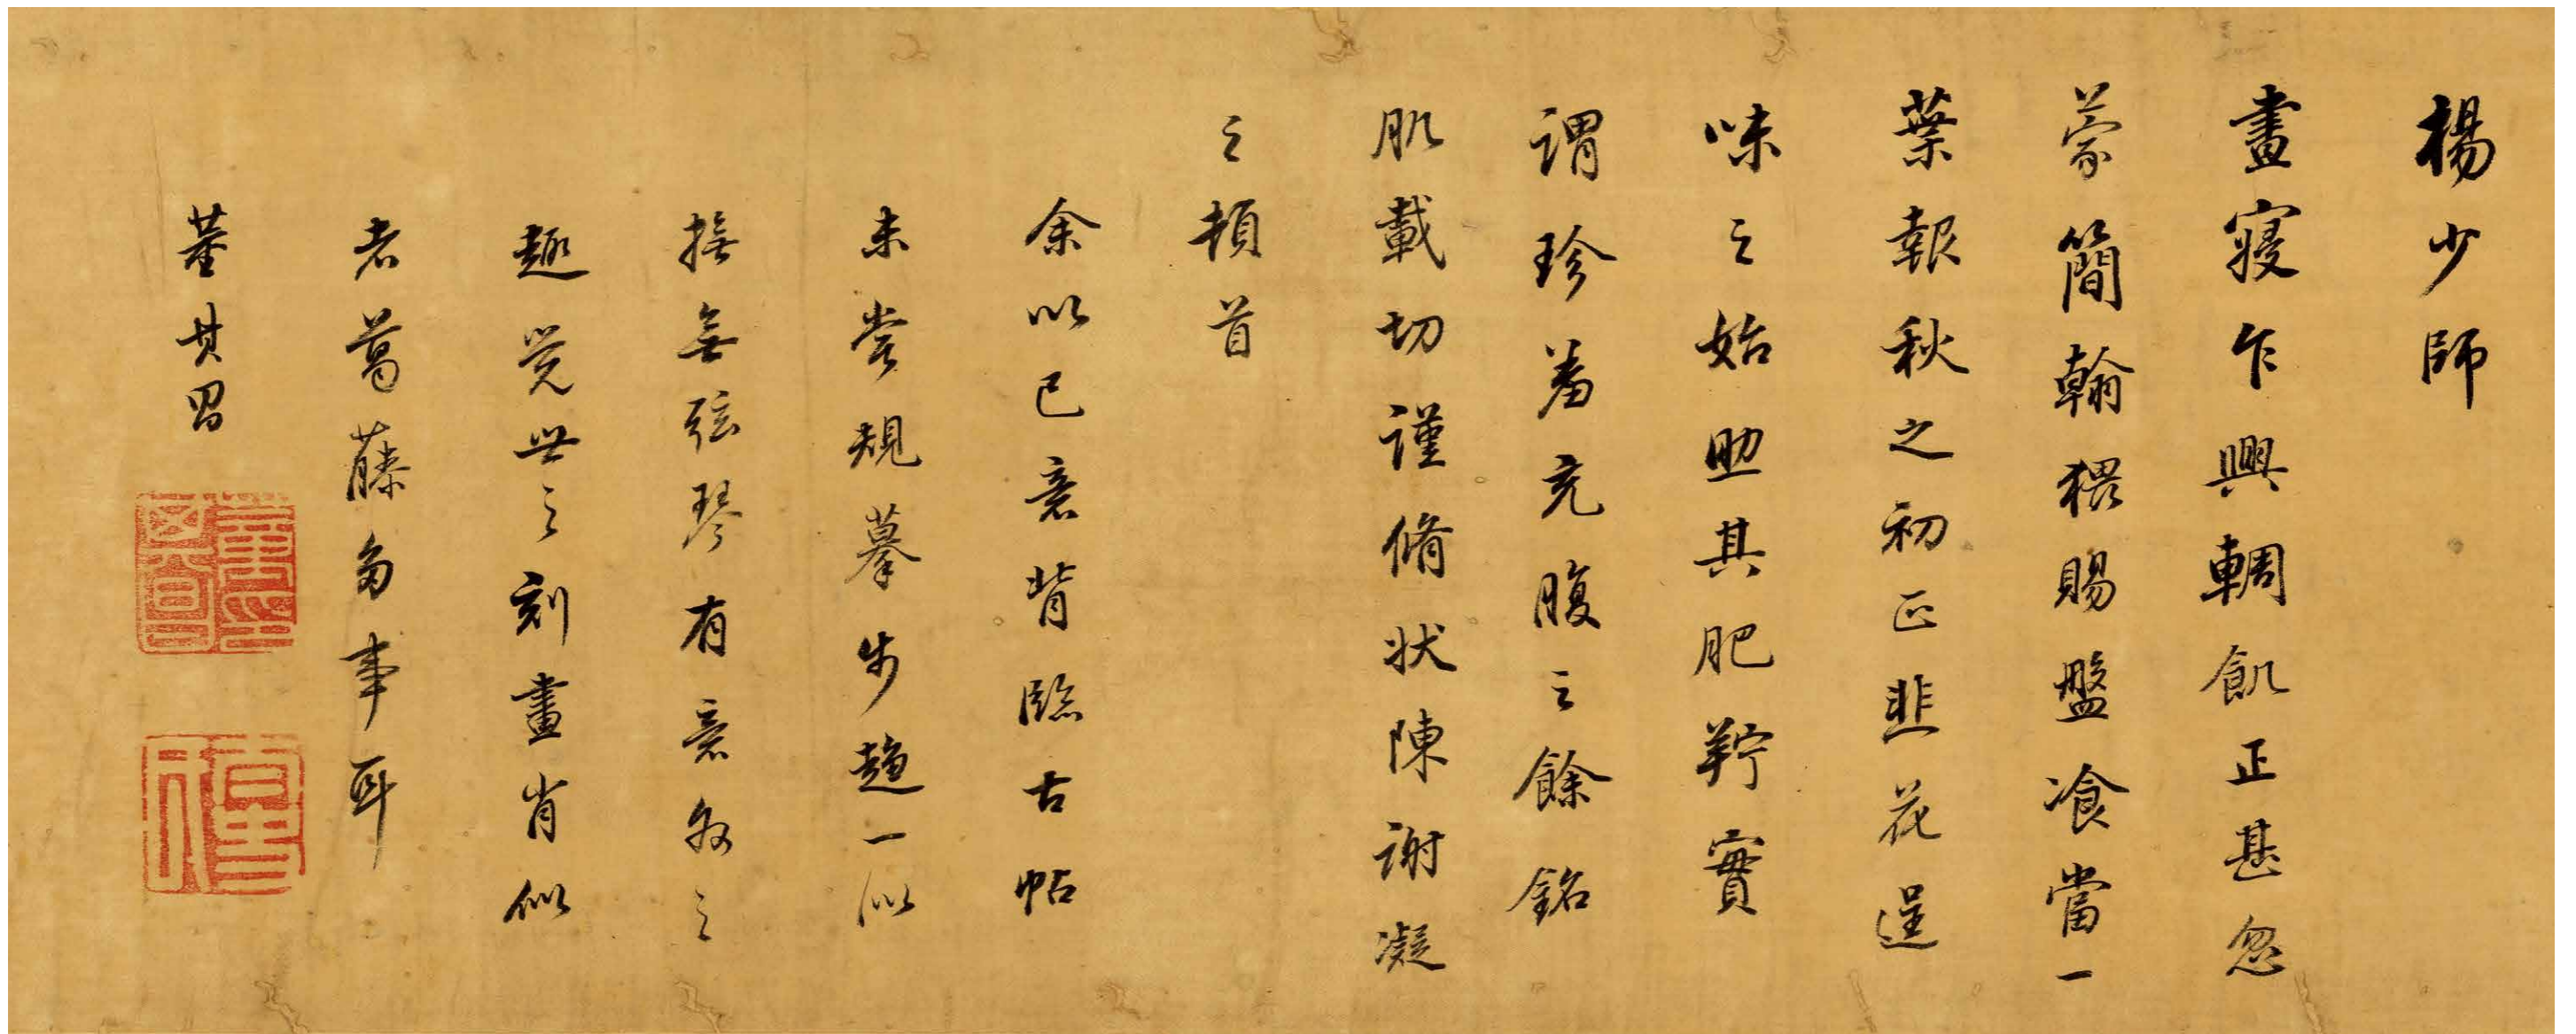 楊少師
晝寢乍興輖飢正甚忽
蒙簡翰猥賜盤飡當一
葉報秋之初正韭花逞
味之始助其肥羜實
謂珍羞充腹之餘銘
肌載切謹脩狀陳謝凝
之頓首
余以己意背臨古帖
未嘗規摹步趨一似
撫無弦琴有意外之
趣覺世之刻畫肖似
者葛藤多事耳
董其昌